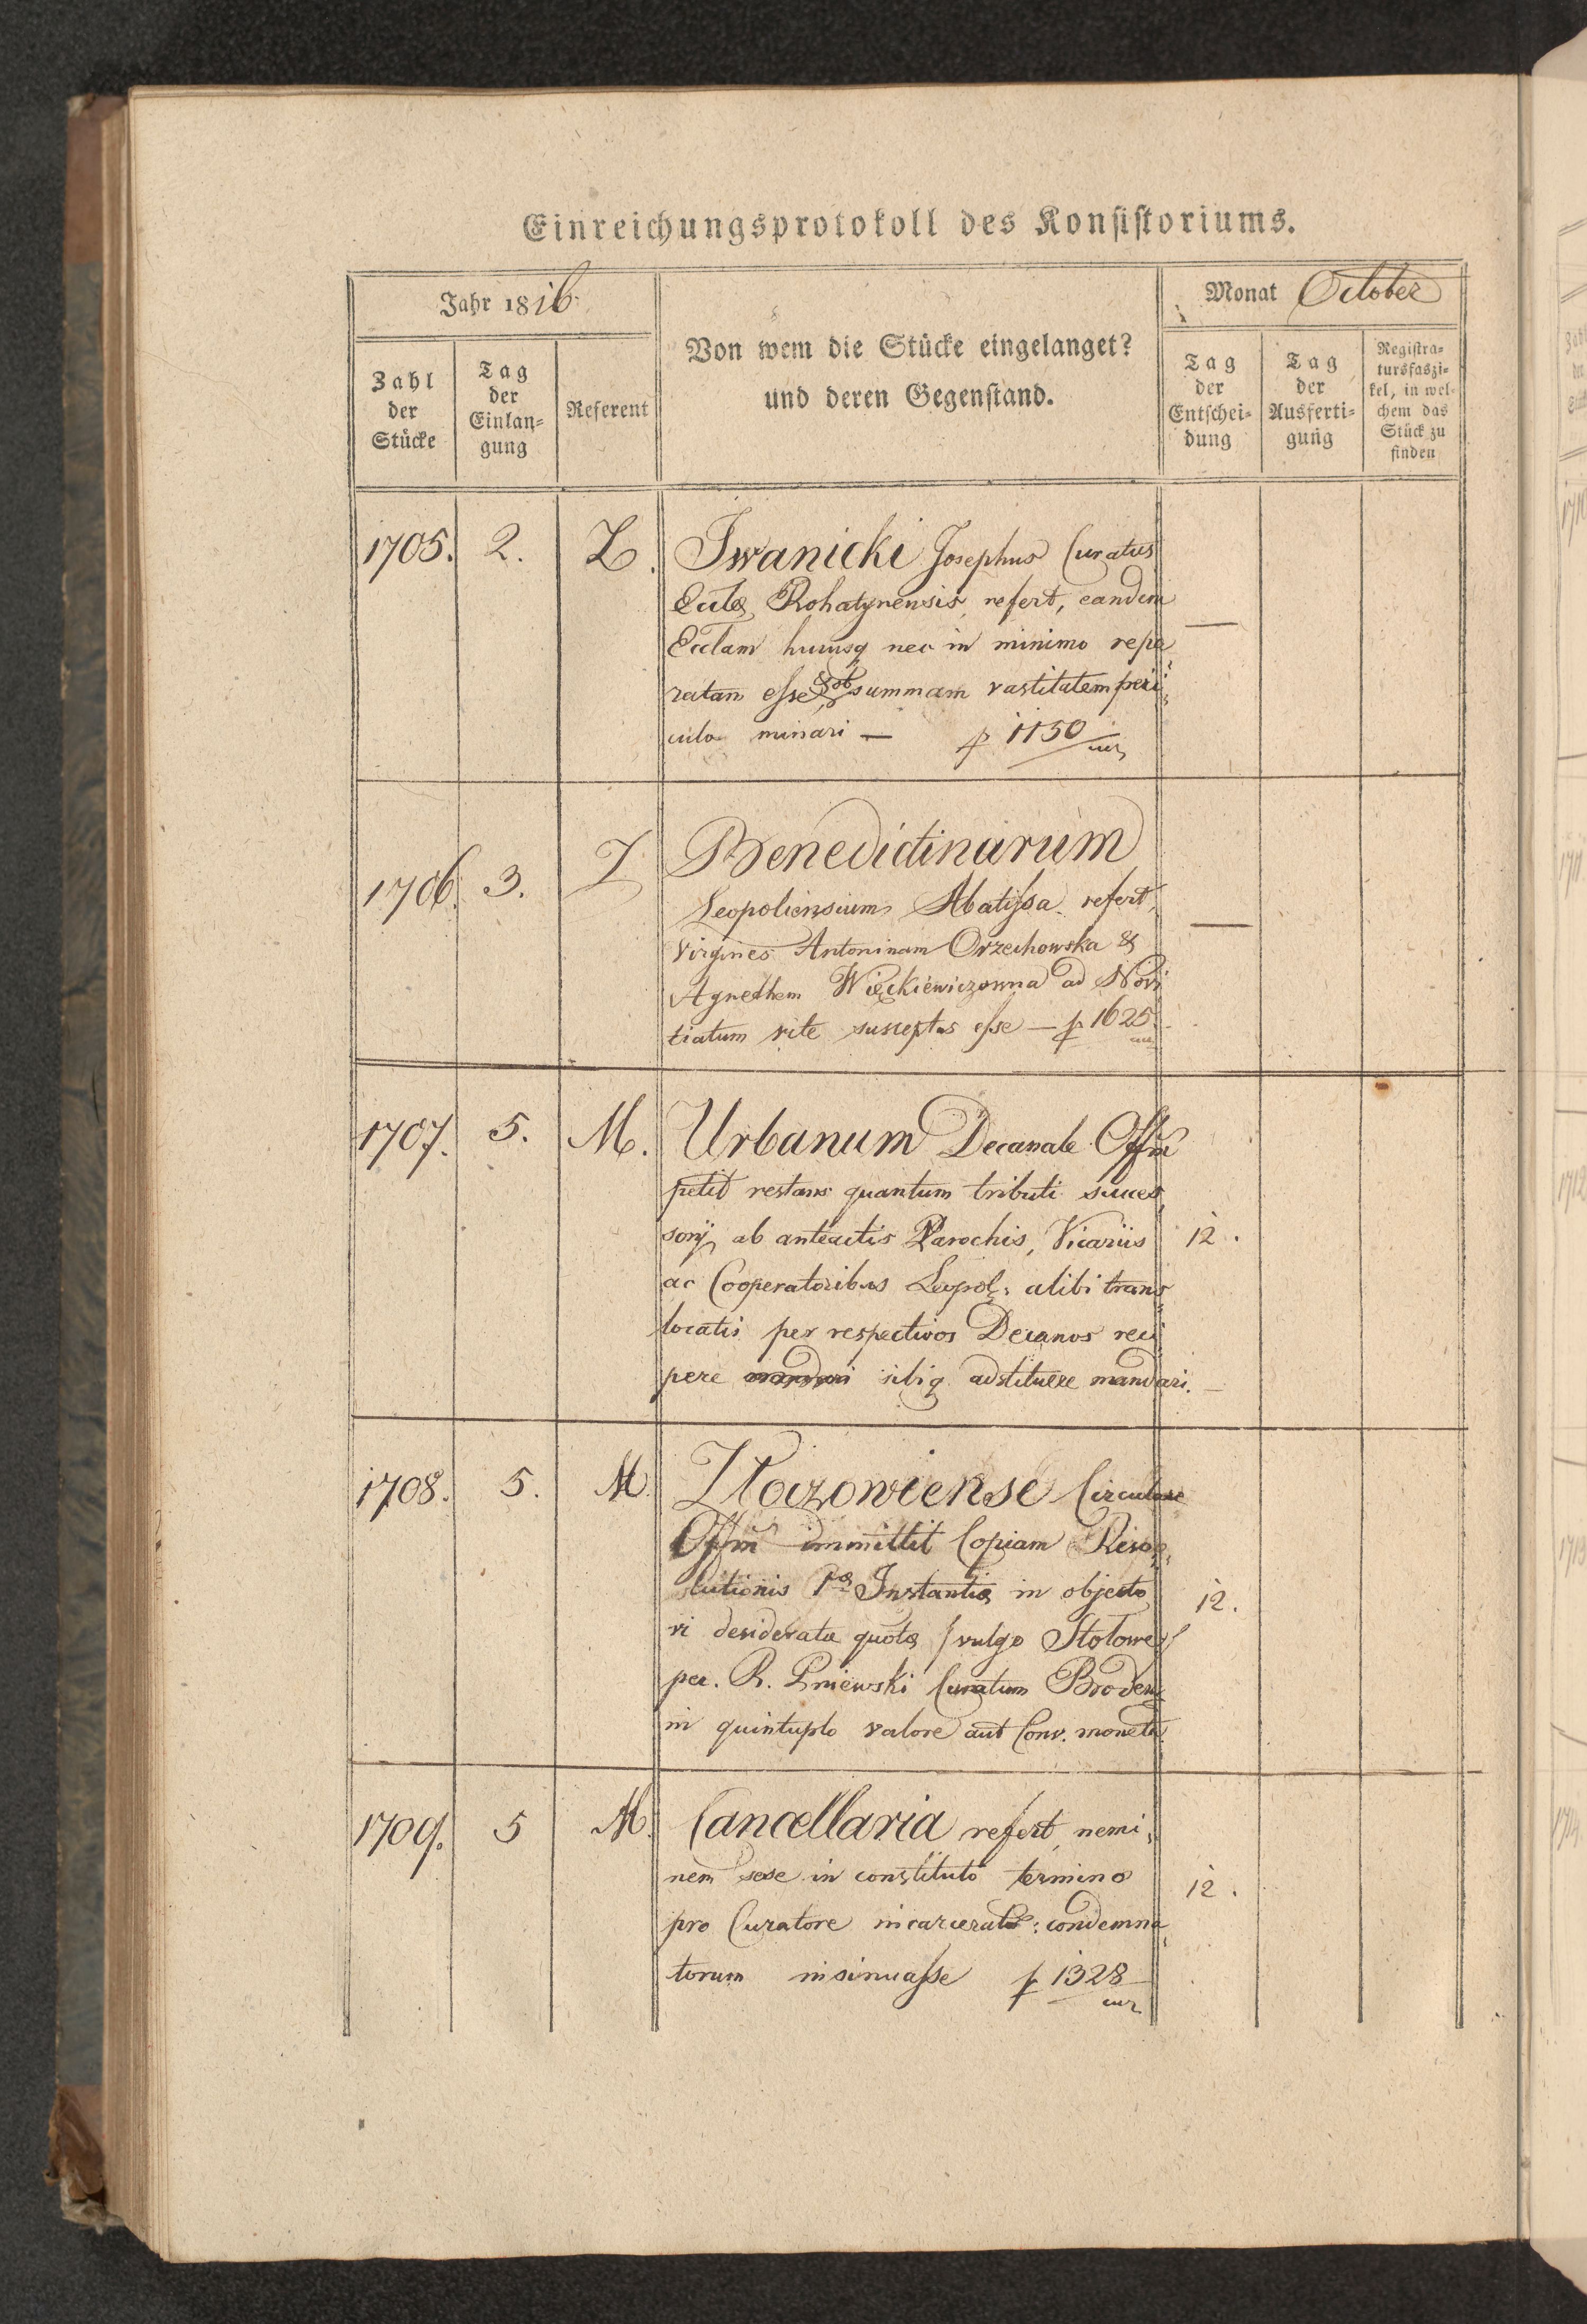 Einreichungsprotokoll des Konsistoriums.
Jahr 1816.
Monat October
Zahl der Stücke
Tag der Einlan-gung
Referent
Von wem die Stücke eingelanget?
und deren Gegenstand.
Tag der Entschei-dung
Tag der Ausferti-gung
Registra-tursfaszi-kel, in wel-chem das Stück zu finden
1705. 2. Z. Iwanicki Josephus Curatus
Eccle Rohatynensis, refert, eandem
Ecclam hucusq nec in minimo repa
ratam esse & ob summam vastitatem peri
culo minari — p 1150
1706. 3. Z Benedictinarum
Leopoliensium Abatissa refert,
Virgines Antoninam Orzechowska &
Agnethem Więckiewiczowna ad Novi
tiatum rite susceptas esse — p 1625.
1707. 5. M. Urbanum Decanale Offm
petit restans quantum tributi succes
sorij ab anteactis Parochis, Vicariis
12.
ac Cooperatoribus Leopol: alibi trans
locatis per respectivos Decanos reci
pere sibiq adstituere mandari.
1708. 5. M. Złoczowiense Circulare
Offm immittit Copiam Reso
lutionis 1æ Instantiæ in objecto
12.
ri desideratæ quotæ /vulgo Stołowe/
per. R. Pniewski Curatum Brodens
in quintuplo valore aut Conv. moneta
1709. 5 M. Cancellaria refert, nemi
nem sese in constituto termino
12.
pro Curatore incarcerat: condemna
torum insinuasse p 1328